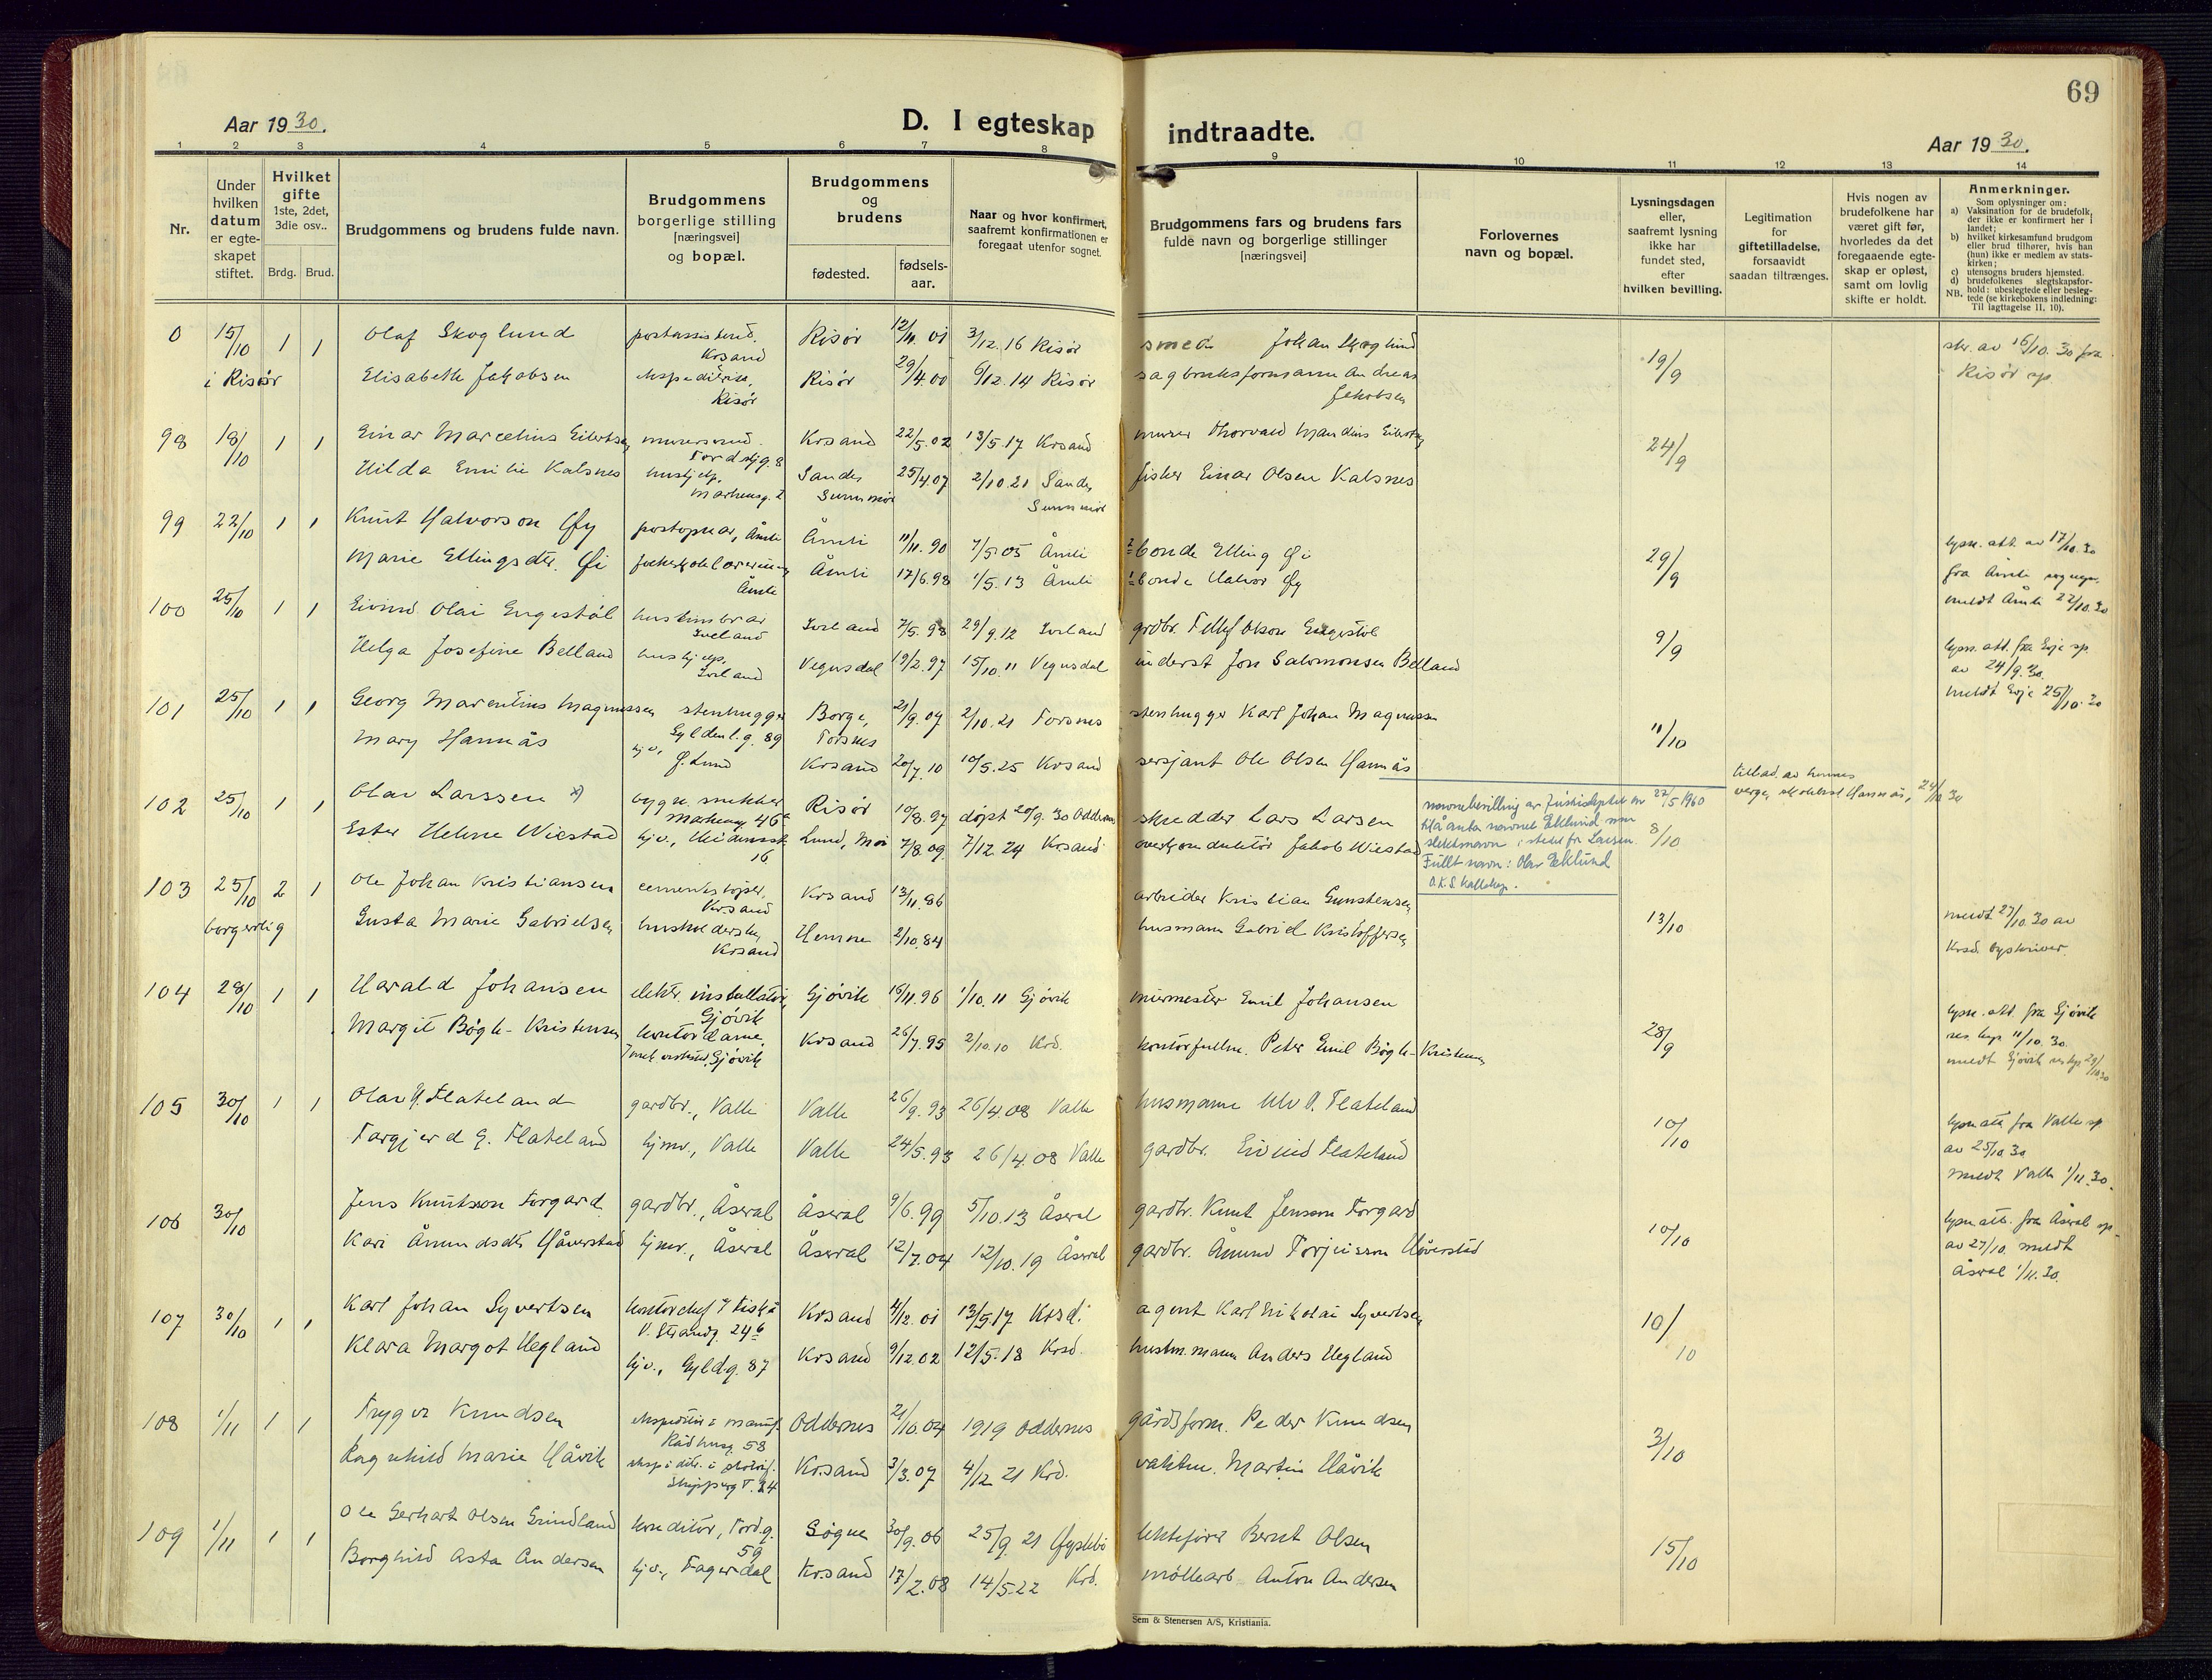 69
Aar 1930.
D. I egteskap indtraadte.
Aar 1930.
1 2 3 4 5 6 7 8 9 10 11 12 13 14
Nr.
Under hvilken datum er egte-skapet stiftet.
Hvilket gifte 1ste, 2det, 3die osv..
Brdg. Brud.
Brudgommens og brudens fulde navn.
Brudgommens borgerlige stilling [næringsvei] og bopæl.
Brudgommens og brudens
fødested.
fødsels-aar.
Naar og hvor konfirmert, saafremt konfirmationen er foregaat utenfor sognet.
Brudgommens fars og brudens fars fulde navn og borgerlige stillinger [næringsvei]
Forlovernes navn og bopæl.
Lysningsdagen eller, saafremt lysning ikke har fundet sted, efter hvilken bevilling.
Legitimation for giftetilladelse, forsaavidt saadan tiltrænges.
Hvis nogen av brudefolkene har været gift før, hvorledes da det foregaaende egte-skap er opløst, samt om lovlig skifte er holdt.
Anmerkninger.
Som oplysninger om:
a) Vaksination for de brudefolk, der ikke er konfirmert her i landet;
b) hvilket kirkesamfund brudgom eller brud tilhører, hvis han (hun) ikke er medlem av stats-kirken;
c) utensogns bruders hjemsted.
d) brudefolkenes slegtskapsfor-hold: ubeslegtede eller besleg-tede (se kirkebokens indledning: Til iagttagelse II, 10).
NB.
0 15/10 1 1 Olaf Skoglund postassistend. Krsand Risör 12/11 01 3/12.16 Risör smed Johan Skoglund 19/9 skr. av 16/10.30 fra Risör sp.
i Risör Elisabeth Jakobsen ekspeditrise, Risör Risör 29/4.00 6/12.14 Risör sagbruksformann Andreas Jakobsen
98 18/10 1 1 Einar Marcelius Eilertsen murersvend. Tordskjg. 8 Krsand 22/5.02 13/5.17 Krsand murer Thorvald Mandius Eilertsen 24/9
Hilda Emilie Kalsnes hushjelp, Markensg. 2 Sandes Sunnmör 25/4.07 2/10.21 Sandes Sunnmör fisker Einar Olsen Kalsnes
99 22/10 1 1 Knut Halvorson Øy postopnar, Åmli Åmli 11/11.90 7/5.05 Åmli 2 bonde Elling Øi 29/9 lysn. att. av 17/10.30
Marie Ellingsdtr. Øi Åmli Åmli 17/6.98 1/5.13 Åmli 1 bonde Halvor Øy fra Åmli
meldt Åmli 22/10.30
100 25/10 1 1 Eivind Olai Engestöl Iveland Iveland 7/5.98 29/9.12 Iveland grdbr. Tellef Olson Engestöl 9/9 lysn. att. fra Evje sp.
Helga Josefine Belland hushjelp, Iveland Vegusdal 19/2.97 15/10.11 Vegusdal inderst Jon Salomonsen Belland av 24/9.30.
meldt Evje 25/10.30
101 25/10 1 1 Georg Marentius Magnussen stenhugger Gyldenl.g. 89 Borge, Torsnes 21/9.07 2/10.21 Torsnes stenhugger Karl Johan Magnussen 11/10
Mary Hannås hjv., Ø. Lund Krsand 20/7.10 10/5.25 Krsand sersjant Ole Olsen Hannås tillad. av hennes verge, Hannås, 24/10 30
102 25/10 1 1 Olav Larssen x) bygn. snekker Markensg 46 Risör 10/8.97 döpt 20/9.30 Oddernes skredder Lars Larsen 8/10
Ester Helene Wiestad hjv., 16 Lund, Moi 7/8.09 7/12.24 Krsand overkonduktör Jakob Wiestad
navnebevilling av Justisdeptet av 27/5 1960
til å anta navnet Eklund som
slektsnavn i stedet for Larsen.
Fullt navn: Olav Eklund
103 25/10 2 1 Ole Johan Kristiansen cementstøper, Krsand Krsand 13/11.86 arbeider Kristian Gunstensen 13/10 meldt 27/10.30 av
borgerlig Gusta Marie Gabrielsen husholderske, Krsand Hemne 2/10.84 husmann Gabriel Kristoffersen Krsd. byskriver.
104 28/10 1 1 Harald Johansen elektr. installatör, Gjövik Gjövik 18/11.96 1/10.11 Gjövik murmester Emil Johansen 28/9 lysn. att. fra Gjövik
Margit Bögh-Kristensen kontordame, Gjövik Krsand 26/7.95 2/10.10 Krd. kontorfullm. Peter Emil Bögh-Kristensen 11/10.30.
meldt Gjövik 29/10.30
105 30/10 1 1 Olav U. Flateland gardbr., Valle Valle 26/9.93 26/4.08 Valle husmann Ulv O. Flateland 10/10 lysn att fra Valle sp
Targjerd E. Flateland hjmv., Valle Valle 24/5.93 26/4.08 Valle gardbr. Eivind Flateland av 25/10 30
meldt Valle 1/11.30.
106 30/10 Jens Knutsson Torgard gardbr., Åseral Åseral 9/6.99 5/10.13 Åseral gardbr. Knut Jensson Torgard 10/10 lysn att. fra Åseral sp.
Kari Åmundsdtr Håverstad hjmv., Åseral Åseral 12/7.04 12/10.19 Åseral gardbr. Åmund Torjusson Håverstad av 27/10. meldt
Åseral 1/11.30.
107 30/10 1 1 Karl Johan Syvertsen kontorchef v Fiskå V. Strandg. 24 b Krsand 4/12.01 13/5.17 Krsd. agent Karl Nikolai Syvertsen 10/10
Klara Margot Hegland hjv., Gyldg. 87 Krsand 9/12.02 12/5.18 Krsd. Anders Hegland
108 1/11 1 1 Trygve Knudsen ekspeditör i manuf. Rådhusg. 58 Oddernes 21/10.04 1919 Oddernes gårdsform. Peder Knudsen 3/10
Ragnhild Marie Håvik Krsand 3/3.07 4/12 21 Krd. vaktm. Martin Håvik
109 1/11 1 1 Ole Gerhart Olsen Grindland konditor, Tordg. 59 Søgne 30/9.06 25/9.21 Øyslebö Bernt Olsen 15/10
Borghild Asta Andersen hjv., Fagerdal Krsand 17/2.08 14/5.22 Krd. möllearb Anton Andersen
Sem & Stenersen A/S, Kristiania.